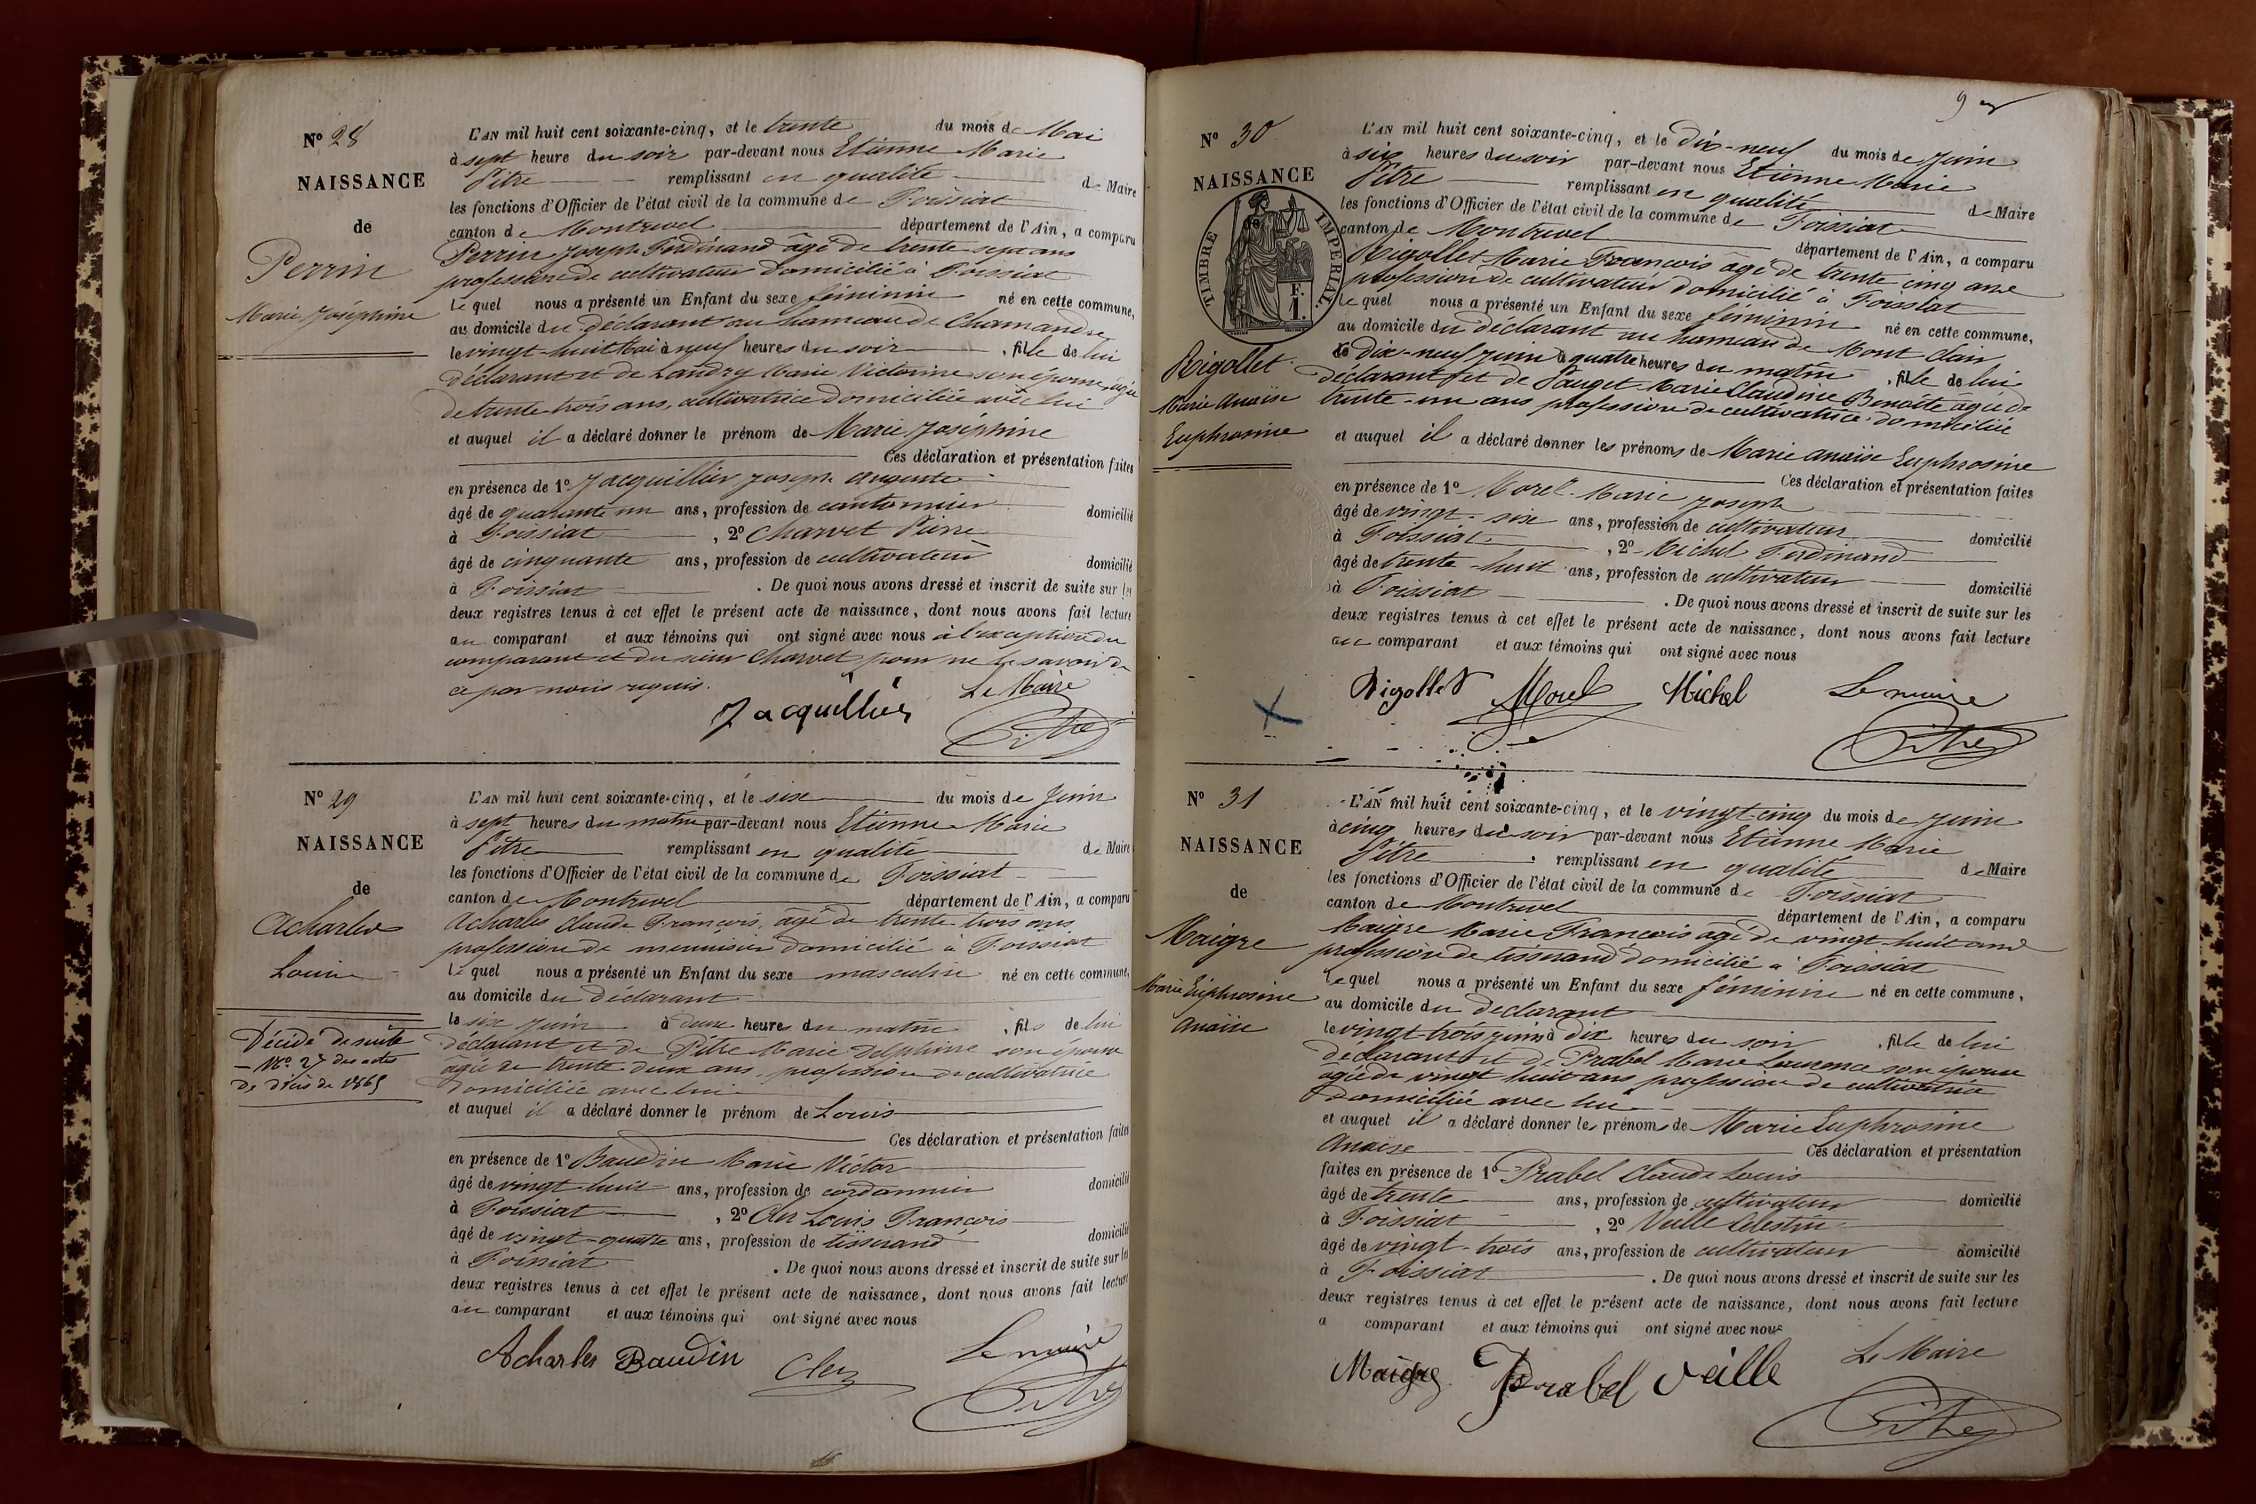 Nº 28
NAISSANCE
de
Perrin
Marie Joséphine
L'AN mil huit cent soixante-cinq, et le trente du mois de Mai
à sept heure du soir par-devant nous Etienne Marie
Pitre remplissant en qualité de Maire
les fonctions d'Officier de l'état civil de la commune de Foissiat
canton de Montrevel département de l'Ain, a comparu
Perrin Joseph Ferdinand âgé de trente sept ans
profession de cultivateur domicilié à Foissiat
Lequel nous a présenté un Enfant du sexe féminin né en cette commune,
au domicile du déclarant au hameau de Chamandre
le vingt-huit Mai à neuf heures du soir, fille de lui
déclarant et de Landry Marie Victorine son épouse, âgée
de trente-trois ans, cultivatrice domiciliée avec lui
et auquel il a déclaré donner le prénom de Marie Joséphine
Ces déclaration et présentation faites
en présence de 1º Jacquillier Joseph
âgé de quarante un ans, profession de cantonnier domicilié
à Foissiat, 2º Charvet Pierre
âgé de cinquante ans, profession de cultivateur domicilié
à Foissiat. De quoi nous avons dressé et inscrit de suite sur les
deux registres tenus à cet effet le présent acte de naissance, dont nous avons fait lecture
au comparant et aux témoins qui ont signé avec nous à l'exception du
comparant et du sieur Charvet pour ne le savoir de
ce par nous requis.
Jacquillier Le Maire
Pitre
Nº 29
NAISSANCE
de
Acharles
Louis
Décédé de suite
Nº 27 des actes
de décès de 1865
L'AN mil huit cent soixante-cinq, et le six du mois de Juin
à sept heures du matin par-devant nous Etienne Marie
Pitre remplissant en qualité de Maire
les fonctions d'Officier de l'état civil de la commune de Foissiat
canton de Montrevel département de l'Ain, a comparu
Acharles Claude François, âgé de trente-trois ans
profession de menuisier domicilié à Foissiat
Lequel nous a présenté un Enfant du sexe masculin né en cette commune,
au domicile du déclarant
le six juin à deux heures du matin, fils de lui
déclarant et de Pitre Marie Delphine son épouse
âgée de trente deux ans, profession de cultivatrice
domiciliée avec lui
et auquel il a déclaré donner le prénom de Louis
Ces déclaration et présentation faites
en présence de 1º Baudin Marie Victor
âgé de vingt-huit ans, profession de cordonnier domicilié
à Foissiat, 2º Cler Louis François
âgé de vingt-quatre ans, profession de tisserand domicilié
à Foissiat. De quoi nous avons dressé et inscrit de suite sur les
deux registres tenus à cet effet le présent acte de naissance, dont nous avons fait lecture
au comparant et aux témoins qui ont signé avec nous
Acharles Baudin Cler Le maire
Pitre
Nº 30
NAISSANCE
TIMBRE IMPÉRIAL
F.
1.
Rigollet
Marie Anaïse
Euphrosine
L'AN mil huit cent soixante-cinq, et le dix-neuf du mois de Juin
à six heures du soir par-devant nous Etienne Marie
Pitre remplissant en qualité de Maire
les fonctions d'Officier de l'état civil de la commune de Foissiat
canton de Montrevel département de l'Ain, a comparu
Rigollet Marie François âgé de trente cinq ans
profession de cultivateur domicilié à Foissiat
Lequel nous a présenté un Enfant du sexe féminin né en cette commune,
au domicile du déclarant au hameau de Mont clair
le dix-neuf juin à quatre heures du matin, fille de lui
déclarant et de Pauget Marie Claudine Benoîte âgée de
trente-un ans profession de cultivatrice domiciliée
et auquel il a déclaré donner les prénoms de Marie Anaïse Euphrosine
Ces déclaration et présentation faites
en présence de 1º Morel Marie Joseph
âgé de vingt-six ans, profession de cultivateur domicilié
à Foissiat, 2º Michel Ferdinand
âgé de trente-huit ans, profession de cultivateur domicilié
à Foissiat. De quoi nous avons dressé et inscrit de suite sur les
deux registres tenus à cet effet le présent acte de naissance, dont nous avons fait lecture
au comparant et aux témoins qui ont signé avec nous
Rigollet Morel Michel Le maire
Pitre
Nº 31
NAISSANCE
de
Maigre
Marie Euphrosine
Anaïse
L'AN mil huit cent soixante-cinq, et le vingt-cinq du mois de Juin
à cinq heures du soir par-devant nous Etienne Marie
Pitre remplissant en qualité de Maire
les fonctions d'Officier de l'état civil de la commune de Foissiat
canton de Montrevel département de l'Ain, a comparu
Maigre Marie François âgé de vingt-huit ans
profession de tisserand domicilié à Foissiat
Lequel nous a présenté un Enfant du sexe féminin né en cette commune,
au domicile du déclarant
le vingt-trois juin à dix heures du soir, fille de lui
déclarant et de Prabel Marie Laurence son épouse
âgée de vingt huit ans profession de cultivatrice
domiciliée avec lui
et auquel il a déclaré donner les prénoms de Marie Euphrosine
Anaïse Ces déclaration et présentation
faites en présence de 1º Prabel Claude Louis
âgé de trente ans, profession de cultivateur domicilié
à Foissiat, 2º Veille Célestin
âgé de vingt-trois ans, profession de cultivateur domicilié
à Foissiat. De quoi nous avons dressé et inscrit de suite sur les
deux registres tenus à cet effet le présent acte de naissance, dont nous avons fait lecture
a comparant et aux témoins qui ont signé avec nous
Maigre Prabel Veille Le Maire
Pitre